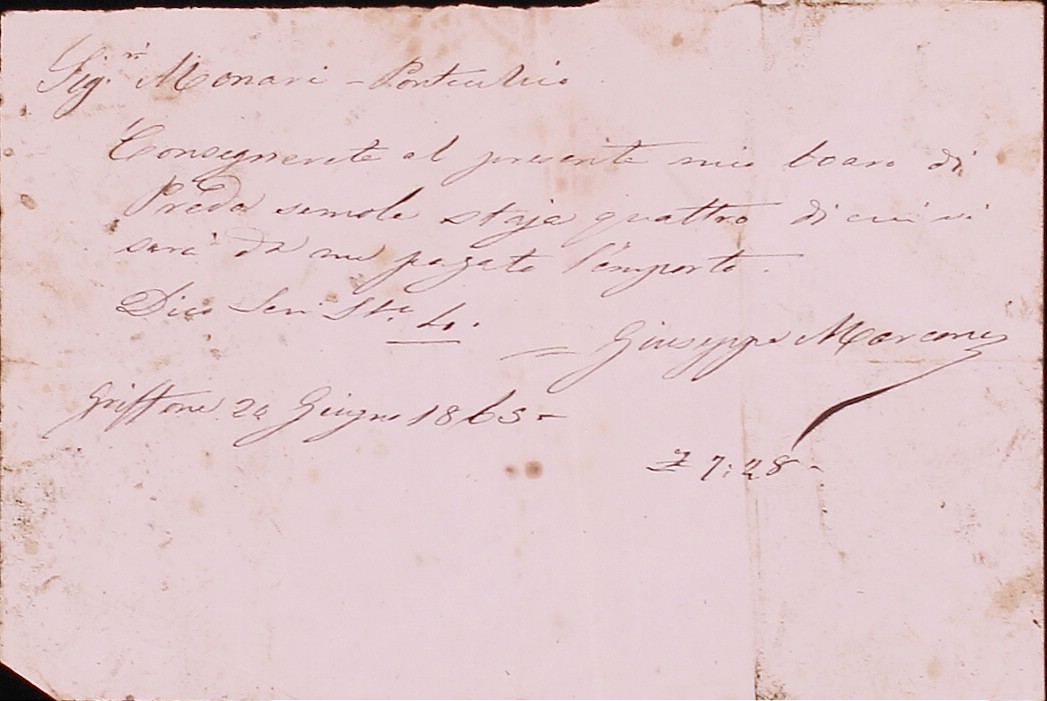 Sig.ri Monari – Pontecchio
Consegnerete al presente mio boaro di
Preda semole staja quattro di cui vi
sarà da me pagato l'importo.
Dico Sem Sta. 4.
Giuseppe Marconi
Griffone 20 Giugno 1863 –
£ 7:28 –